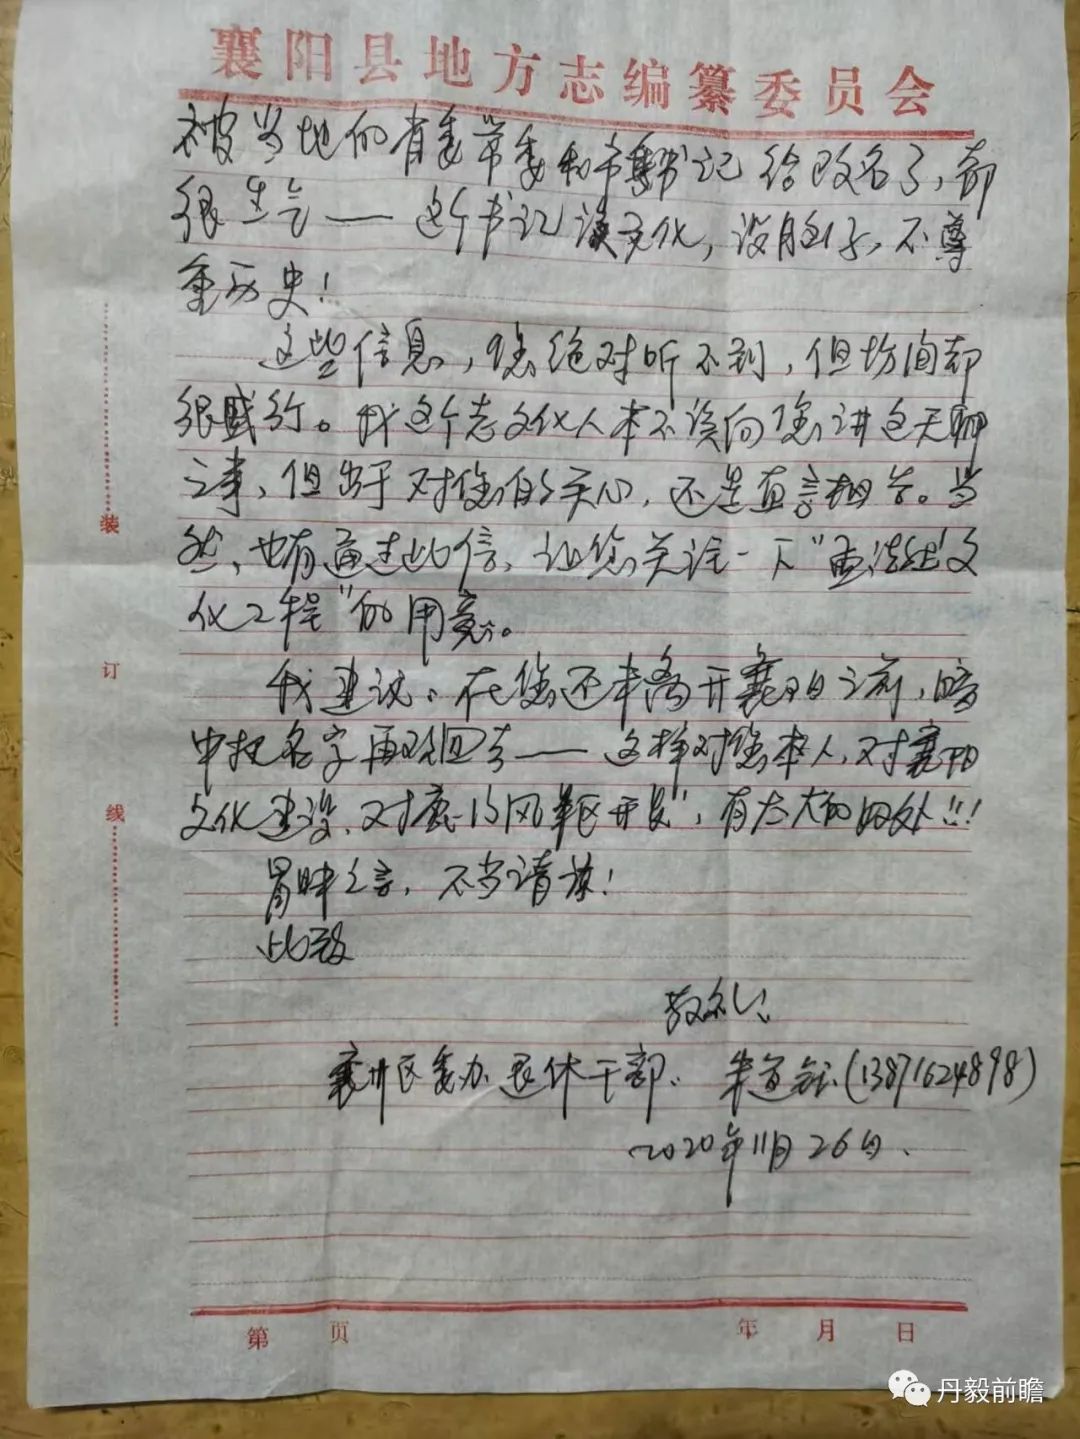 襄阳县地方志编纂委员会
被当地的省委常委和市委书记给改名了，都
很生气——这个书记没文化，没脑子，不尊
重历史！
这些信息，您绝对听不到，但坊间却
很盛行。我这个老文化人本不该向您讲这无聊
之事，但出于对您的关心，还是直言相告。当
然，也有通过此信，让您关注一下“孟浩然文
化工程”的用意。
我建议：在您还未离开襄阳之前，暗
中把名字再改回去——这样对您本人，对襄阳
文化建设，对鹿门风景区开发，有大大的好处！！！
冒昧之言，不当请谅！
此致
敬礼！
襄州区委办退休干部：朱道(13871624898)
2020年11月26日．
装
订
线
第 页
年 月 日
丹毅前瞻